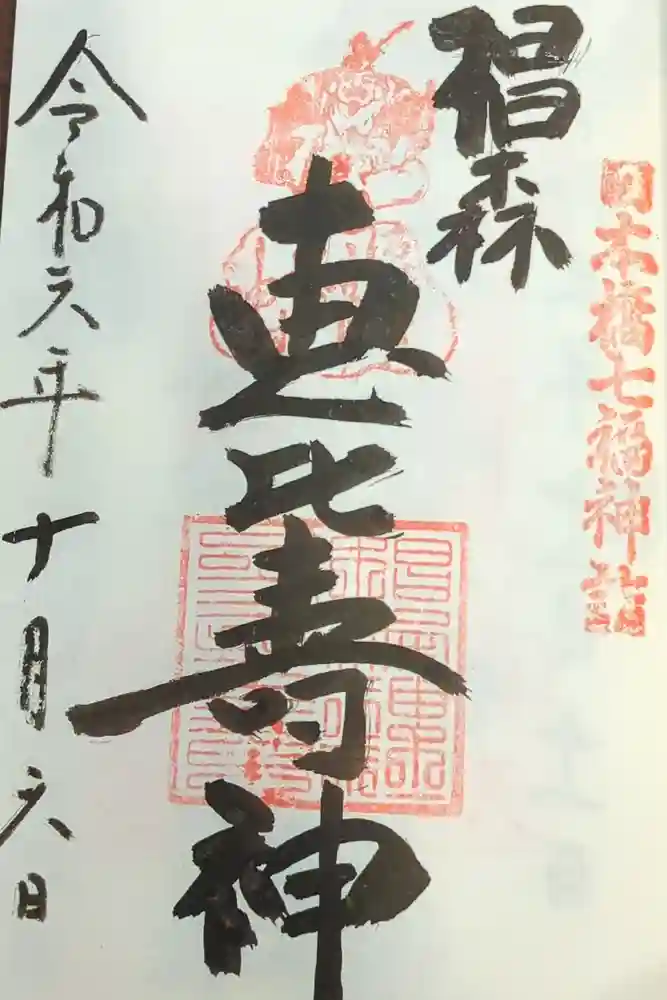 日本橋七福神詣
椙森
恵比寿神
令和元年十月六日